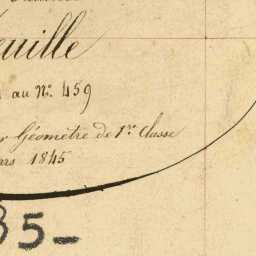 euille
au N.° 459
Géomètre de 1.re Classe
ars 1845
35_